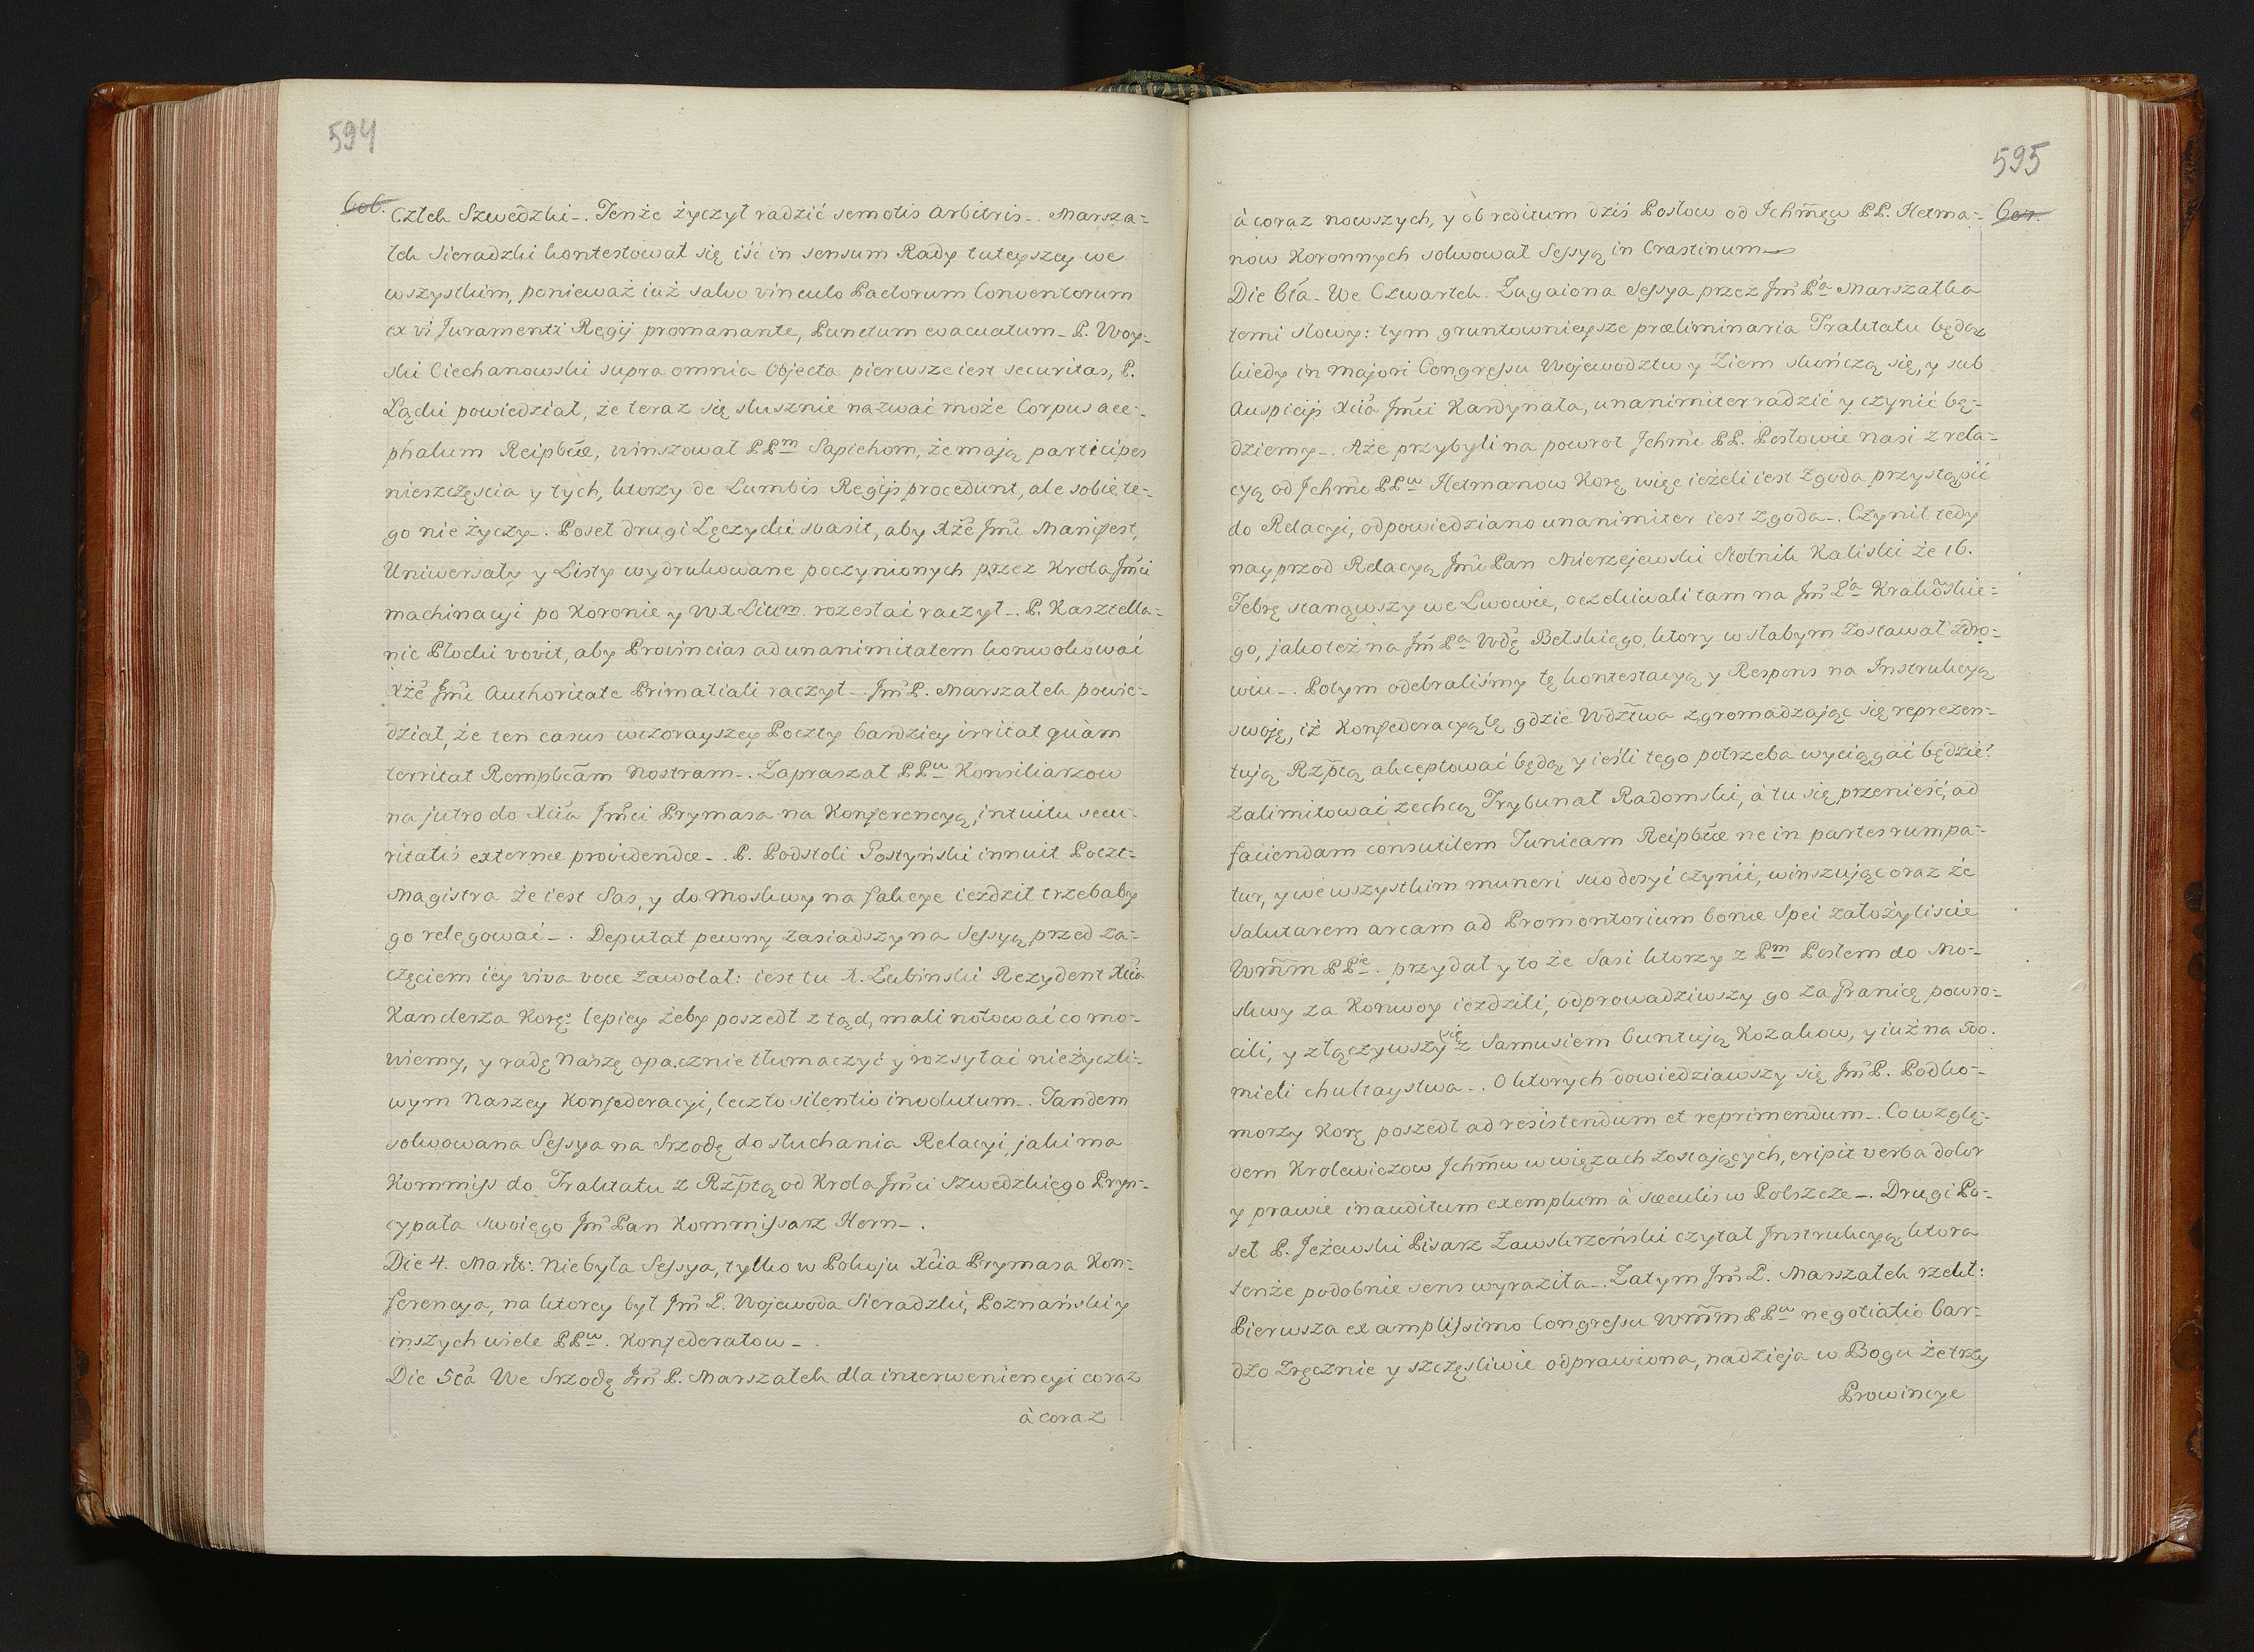 594
606.
Człek Szwedzki_. Tenże życzył radzić semotis Arbitris_. Marsza=
łek Sieradzki kontestował się iść in sensum Rady tuteyszey we
wszystkim, ponieważ iuż salvo vinculo Pactorum Conventorum
ex vi Juramenti Regij promanante, Punctum evacuatum_ P. Woy=
ski Ciechanowski supra omnia Objecta pierwsze iest securitas, P.
Łącki powiedział, że teraz się słusznie nazwać może Corpus ace=
phalum Reipbcæ, winszował PPm Sapiehom, że mają participes
nieszczęscia y tych, ktorzy de Lumbis Regijs procedunt, ale sobie te=
go nie życzy_. Poseł drugi Łęczycki svasit, aby Xże Jmć Manifest,
Uniwersały y Listy wydrukowane poczynionych przez Krola Jmci
machinacyi po Koronie y WX Litm. rozesłać raczył_. P. Kasztella=
nic Płocki vovit, aby Provincias ad unanimitatem konwokować
Xże Jmć Authoritate Primatiali raczył_. Jm̃ P. Marszałek powie=
dział, że ten casus wczorayszey Poczty bardziey irritat quàm
territat Rempbcam Nostram_. Zapraszał PPw Konsiliarzow
na jutro do Xcia Jmci Prymasa na Konferencyą, intuitu secu=
ritatis externæ providendæ_. P. Podstoli Gostyński innuit Poczt=
Magistra że iest Sas, y do Moskwy na fakcye ieździł trzebaby
go relegować_. Deputat pewny zasiadszy na Sessyą przed za=
częciem iey viva voce zawołał: iest tu X. Łubinski Rezydent Xcia
Kanclerza Korę: lepiey żeby poszedł z tąd, mali notować co mo=
wiemy, y radę Naszę opacznie tłumaczyć y rozsyłać nieżyczli=
wym Naszey Konfederacyi, lecz to silentio involutum_. Tandem
solwowana Sessya na Srzodę do słuchania Relacyi, jaki ma
Kommiss do Traktatu z Rzptą od Krola Jmci Szwedzkiego Pryn=
cypała swoiego Jm̃ Pan Kommissarz Horn_.
Die 4. Marti: Niebyła Sessya, tylko w Pokoju Xcia Prymasa Kon=
ferencya, na ktorey był Jm̃ P. Wojewoda Sieradzki, Poznański y
inszych wiele PPw. Konfederatow_.
Die 5ta We Srzodę Jm̃ P. Marszałek dla interweniencyi coraz
à coraz
595
607.
à coraz nowszych, y ob reditum dziś Posłow od Jchmęw PP. Hetma=
now Koronnych solwował Sessyą in Crastinum_
Die 6ta_ We Czwartek. Zagaiona Sessya przez Jm̃ Pa Marszałka
temi słowy: tym gruntownieysze præliminaria Traktatu będą
kiedy in majori Congressu Wojewodztw y Ziem skończą się, y sub
Auspicijs Xcia Jmci Kardynała, unanimiter radzić y czynić bę=
dziemy_. Aże przybyli na powrot Jchmć PP. Posłowie nasi z rela=
cyą od Jchmć PPw Hetmanow Korę więc ieżeli iest zgoda przystąpić
do Relacyi, odpowiedziano unanimiter iest zgoda_. Czynił tedy
nayprzod Relacyą Jmć Pan Mierzejewski Stolnik Kaliski że 16.
Febrę stanąwszy we Lwowie, oczekiwali tam na Jm̃ Pa Krakõskie=
go, jako też na Jm̃ Pa Wdę Bełskiego, ktory w słabym zostawał zdro=
wiu_. Potym odebraliśmy tę kontestacyą y Respons na Instrukcyą
swoję, iż Konfederacyą tę gdzie Wdztwa zgromadzając się reprezen=
tują Rzptą akceptować będą y ieśli tego potrzeba wyciągać będzie
zalimitować zechcą Trybunał Radomski, à tu się przenieść, ad
faciendam consutilem Tunicam Reipbcæ ne in partes rumpa=
tur, y we wszystkim muneri suo dosyć czynić, winszując oraz że
salutarem arcam ad Promontorium bonæ Spei założyliscie
Wmm PPie. przydał y to że Sasi ktorzy z Pm Posłem do Mo=
skwy za Konwoy ieździli, odprowadziwszy go za granicę powro=
cili, y złączywszy się z Samusiem buntują Kozakow, y iuż na 500.
mieli chultaystwa_. O ktorych dowiedziawszy się Jm̃ P. Podko=
morzy Korę poszedł ad resistendum et reprimendum_. Co wzglę=
dem Krolewiczow Jchmw w więzach zostających, eripit verba dolor
y prawie inauditum exemplum à sæculis w Polszcze_. Drugi Po=
seł P. Jeżewski Pisarz Zawskrzeński czytał Instrukcyą, ktora
tenże podobnie sens wyraziła_. Zatym Jm̃ P. Marszałek rzekł:
Pierwsza ex amplissimo Congressu Wmm PPw negotiatio bar=
dzo zręcznie y szczęsliwie odprawiona, nadzieja w Bogu że trzy
Prowincye